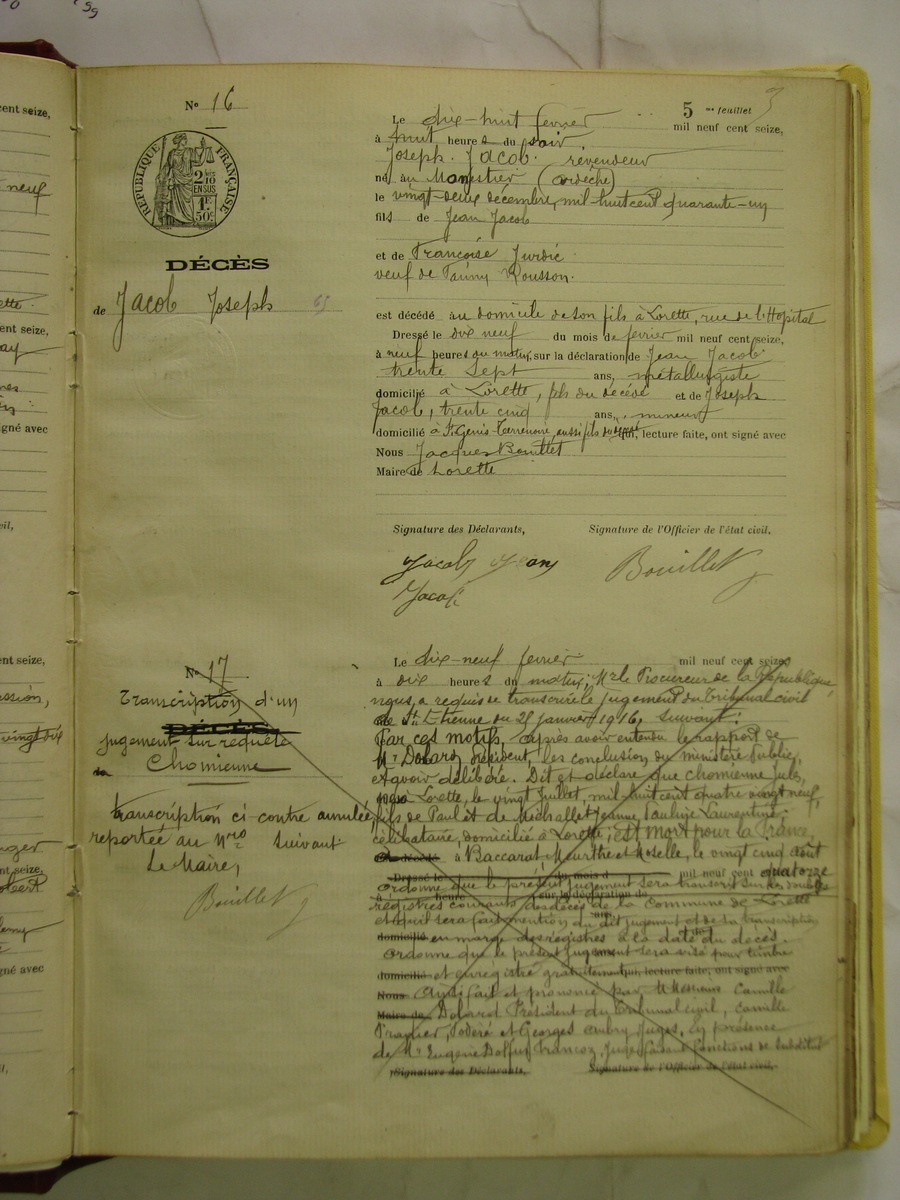 cent seize,
neuf
ette.
ent seize,
ay
signé avec
civil,
ent seize,
ssion,
vingt dix
nt seize,
obert
gné avec
N° 16
RÉPUBLIQUE FRANÇAISE
2/10
EN SUS
1F
50c
DÉCÈS
de Jacob Joseph
5me feuillet
Le dix-huit février mil neuf cent seize,
à huit heures du soir
Joseph Jacob revendeur
né au Monestier (Ardèche)
le vingt-deux décembre, mil-huit cent quarante-un
fils de Jean Jacob
et de Françoise Jurdic
veuf de Fanny Rousson.
est décédé au domicile de son fils à Lorette, rue de l'Hopital
Dressé le dix neuf du mois de février mil neuf cent seize,
à neuf heures du matin, sur la déclaration de Jean Jacob
trente sept ans, métallurgiste
domicilié à Lorette, fils du décédé et de Joseph
Jacob, trente cinq ans, mineur
domicilié à St Genis-Terrenoire, aussi fils du qui, lecture faite, ont signé avec
Nous Jacques Bouillet
Maire de Lorette
Signature des Déclarants, Signature de l'Officier de l'état civil,
Jacob Jean Bouillet
Jacob
N° 17
Transcription d'un
DÉCÈS
jugement sur requête
de Chomienne
transcription ci-contre annulée
reportée au Nro suivant
Le Maire,
Bouillet
Le dix-neuf février mil neuf cent seize
à dix heures du matin; Mr le Procureur de la République
nous a requis de transcrire le jugement du Tribunal civil
de St Etienne du 25 janvier 1916, suivant:
Par ces motifs, après avoir entendu le rapport de
Mr Président, les conclusion du ministère public,
et avoir délibéré. Dit et déclare que Chomienne Jules,
né à Lorette, le vingt Juillet, mil-huit cent quatre vingt neuf,
fils de Paul et de Michallet Jeanne Pauline Laurentine;
célibataire, domicilié à Lorette; est mort pour la France,
est décédé à Baccarat Meurthe et Moselle, le vingt cinq août
Dressé le du mois d mil neuf cent quatorze
ordonne que le présent jugement sera transcrit sur les doubles
à heure sur la déclaration de
registres courants des décès de la Commune de Lorette
ans,
et qu'il sera fait mention du dit jugement et de sa transcription
domicilié en marge des registres à la date du décès.
ordonne que le présent jugement sera visé pour timbre
domicilié et enregistré gratuitement qui, lecture faite, ont signé avec
Nous Ainsi fait et prononcé par M Messieurs Camille
Maire de Président du Tribunal civil, Camille
et Georges Aubry Juges, en présence
de Mr Eugène Juge faisant fonctions de
Signature des Déclarants, Signature de l'Officier de l'état civil,